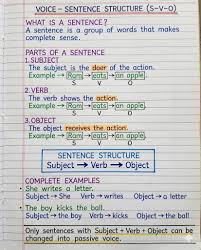 VOICE – SENTENCE STRUCTURE (S-V-O)
WHAT IS A SENTENCE?
A sentence is a group of words that makes
complete sense.
PARTS OF A SENTENCE
1. SUBJECT
The subject is the doer of the action.
Example → Ram → eats → an apple.
S V O
2. VERB
The verb shows the action.
Example → Ram → eats → an apple.
S V O
3. OBJECT
The object receives the action.
Example → Ram → eats → an apple.
S V O
SENTENCE STRUCTURE
Subject → Verb → Object
COMPLETE EXAMPLES
• She writes a letter.
Subject → She Verb → writes Object → a letter
• The boy kicks the ball.
Subject → the boy Verb → kicks Object → the ball
Only sentences with Subject + Verb + Object can
be changed into passive voice.